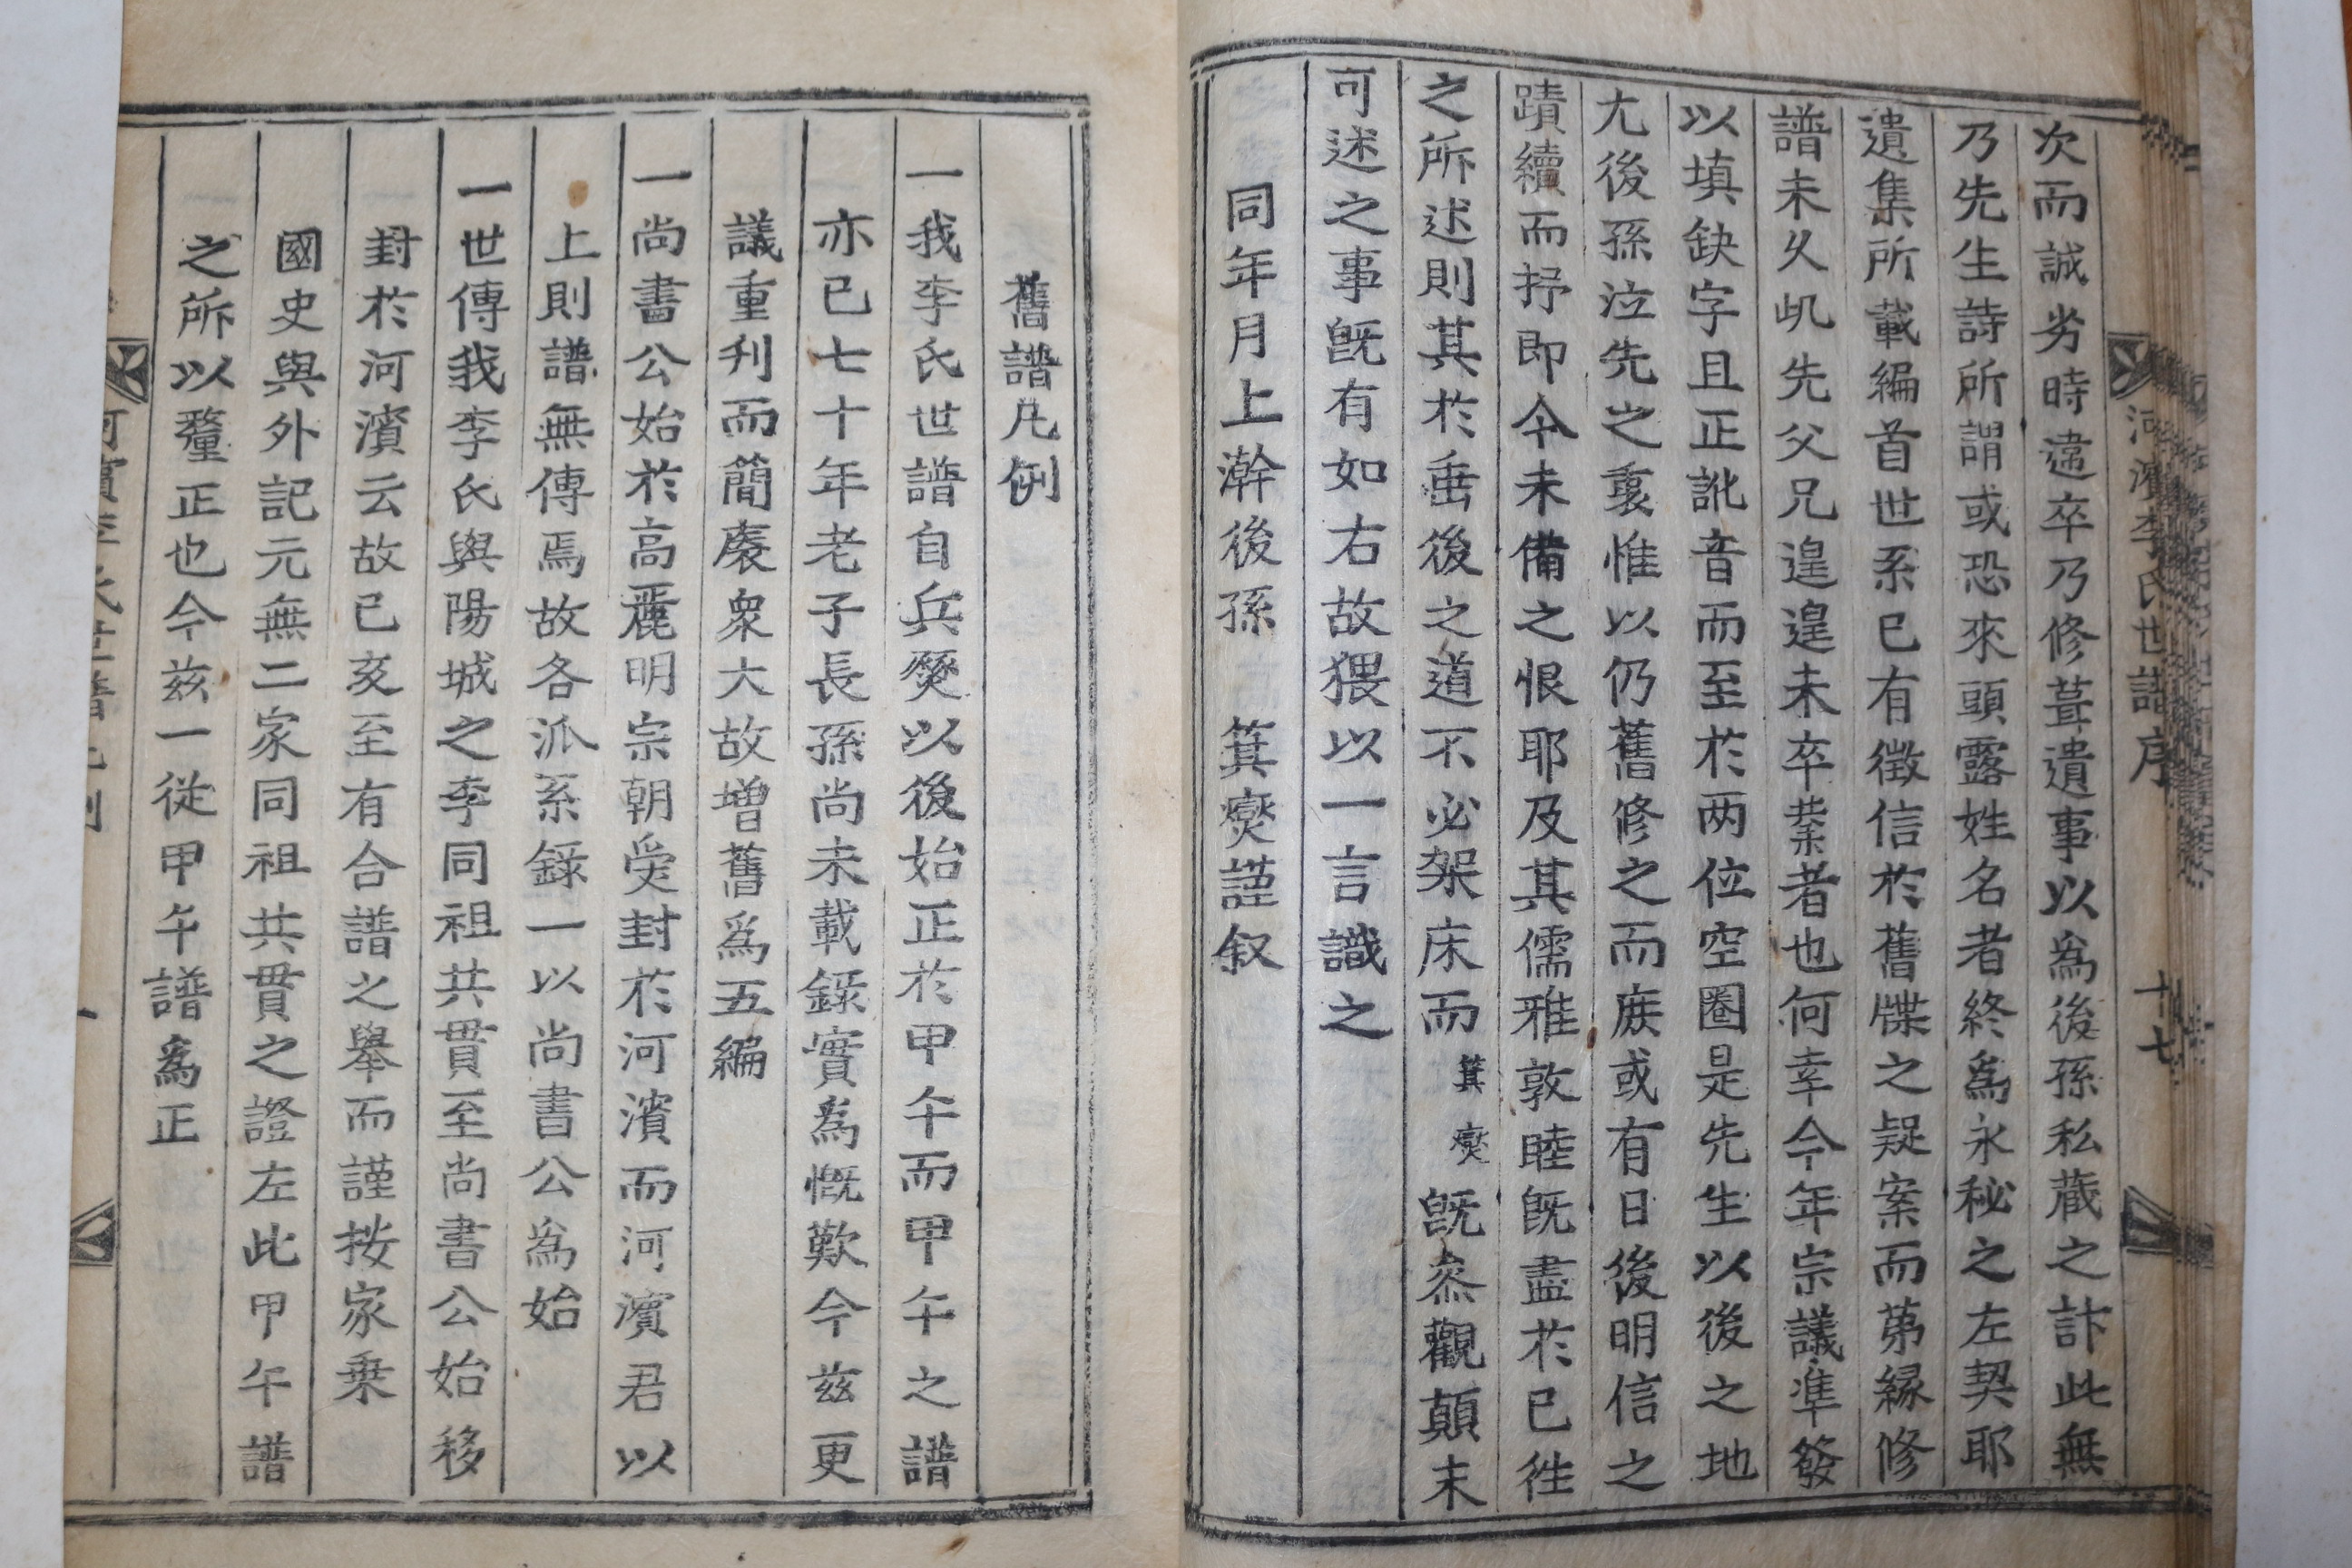 河濱李氏世譜序 十七
次而誠劣時違卒乃修葺遺事以爲後孫私蔵之計此無
乃先生詩所謂或恐來頭露姓名者終爲永秘之左契耶
遺集所載編首世系已有徵信於舊牒之疑案而苐縁修
譜未久屺先父兄遑遑未卒業者也何幸今年宗議準發
以填缺字且正訛音而至於两位空圈是先生以後之地
尤後孫泣先之裏惟以仍舊修之而族或有日後明信之
蹟續而抒即今未備之恨耶及其儒雅敦睦旣盡於已徃
之所述則其於垂後之道不必架床而箕爕旣叅觀顛末
可述之事旣有如右故猥以一言識之
同年月上澣後孫 箕爕謹叙
舊譜凡例
一我李氏世譜自兵燹以後始正於甲午而甲午之譜
亦已七十年老子長孫尚未載錄實爲慨歎今茲更
議重刋而簡袠衆大故增舊爲五編
一尚書公始於高麗明宗朝受封於河濱而河濱君以
上則譜無傳焉故各派系錄一以尚書公爲始
一世傳我李氏與陽城之李同祖共貫至尚書公始移
封於河濱云故已亥至有合譜之舉而謹按家乗
國史與外記元無二家同祖共貫之證左此甲午譜
之所以釐正也今茲一從甲午譜爲正